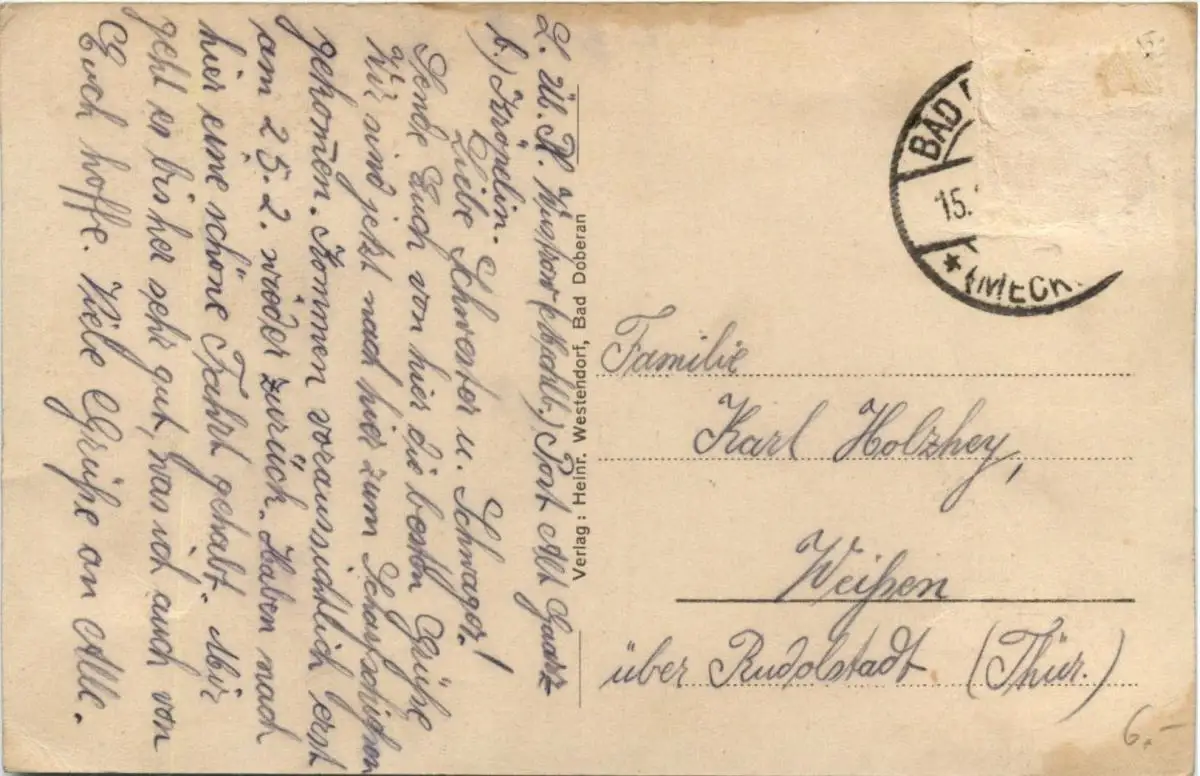 L. Üb. Pl. Wustrow (Mecklb.) Post Alt Gaarz
b.) Kröpelin.
Liebe Schwester u. Schwager!
Sende Euch von hier die besten Grüße
Wir sind jetzt nach hier zum Scharfschießen
gekom̅en. Kommen voraussichtlich erst
am 25.2. wieder zurück. Haben nach
hier eine schöne Fahrt gehabt. Mir
geht es bisher sehr gut, was ich auch von
Euch hoffe. Viele Grüße an Alle.
Verlag: Heinr. Westendorf, Bad Doberan
BAD
15.
(MECK
Familie
Karl Holzhey,
Weißen
über Rudolstadt (Thür.)
6.-